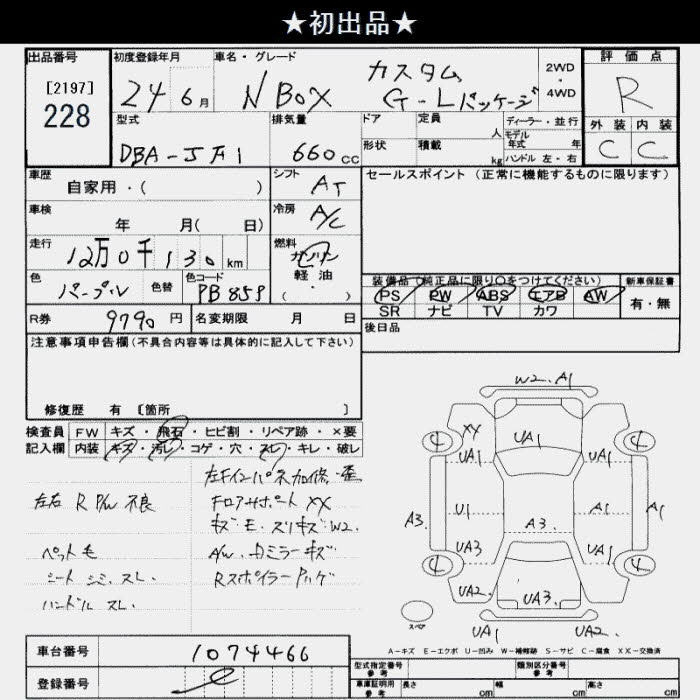 ★初出品★
出品番号
[2197]
228
初度登録年月
24 6月
車名・グレード
N BOX カスタム
G-Lパッケージ
2WD
・
4WD
評価点
R
外装 内装
C C
型式
DBA-JF1
排気量
660cc
ドア
定員
人
ディーラー・並行
モデル年式 年
形状
積載
kg
ハンドル 左・右
車歴
自家用・( )
シフト
AT
セールスポイント (正常に機能するものに限ります)
車検
年 月( 日)
冷房
A/C
走行
12万0千130km
燃料
ガソリン
軽油
( ・ )
色
パープル
色替
色コード
PB85P
装備品(純正品に限り○をつけてください)
新車保証書
PS PW ABS エアB AW
有・無
SR ナビ TV カワ
R券
9790円
名変期限 月 日
後日品
注意事項申告欄(不具合内容等は具体的に記入して下さい)
修復歴 有 [箇所 ]
検査員
記入欄
FW キズ・飛石・ヒビ割・リペア跡・×要
内装 キズ・汚レ・コゲ・穴・スレ・キレ・破レ
左Fインパネ加修・歪
左右 R P/W 不良
Fロアサポート XX
キズ・E・スリキズ W2.
ペット毛
A/W.ドミラーキズ
シート シミ.スレ.
Rスポイラー Pハゲ
ハンドル スレ.
W2. A1
XX
4
4
UA1
UA1
UA1
U1
A1
A1
A3.
A3.
UA3
UA1
4
4
UA2.
UA3.
スペア
UA1
UA2.
A-キズ E-エクボ U-凹み W-補修跡 S-サビ C-腐食 XX-交換済
車台番号
1074466
型式指定番号
参考
類別区分番号
参考
登録番号
車庫証明用
参考
長さ cm
幅 cm
高さ cm